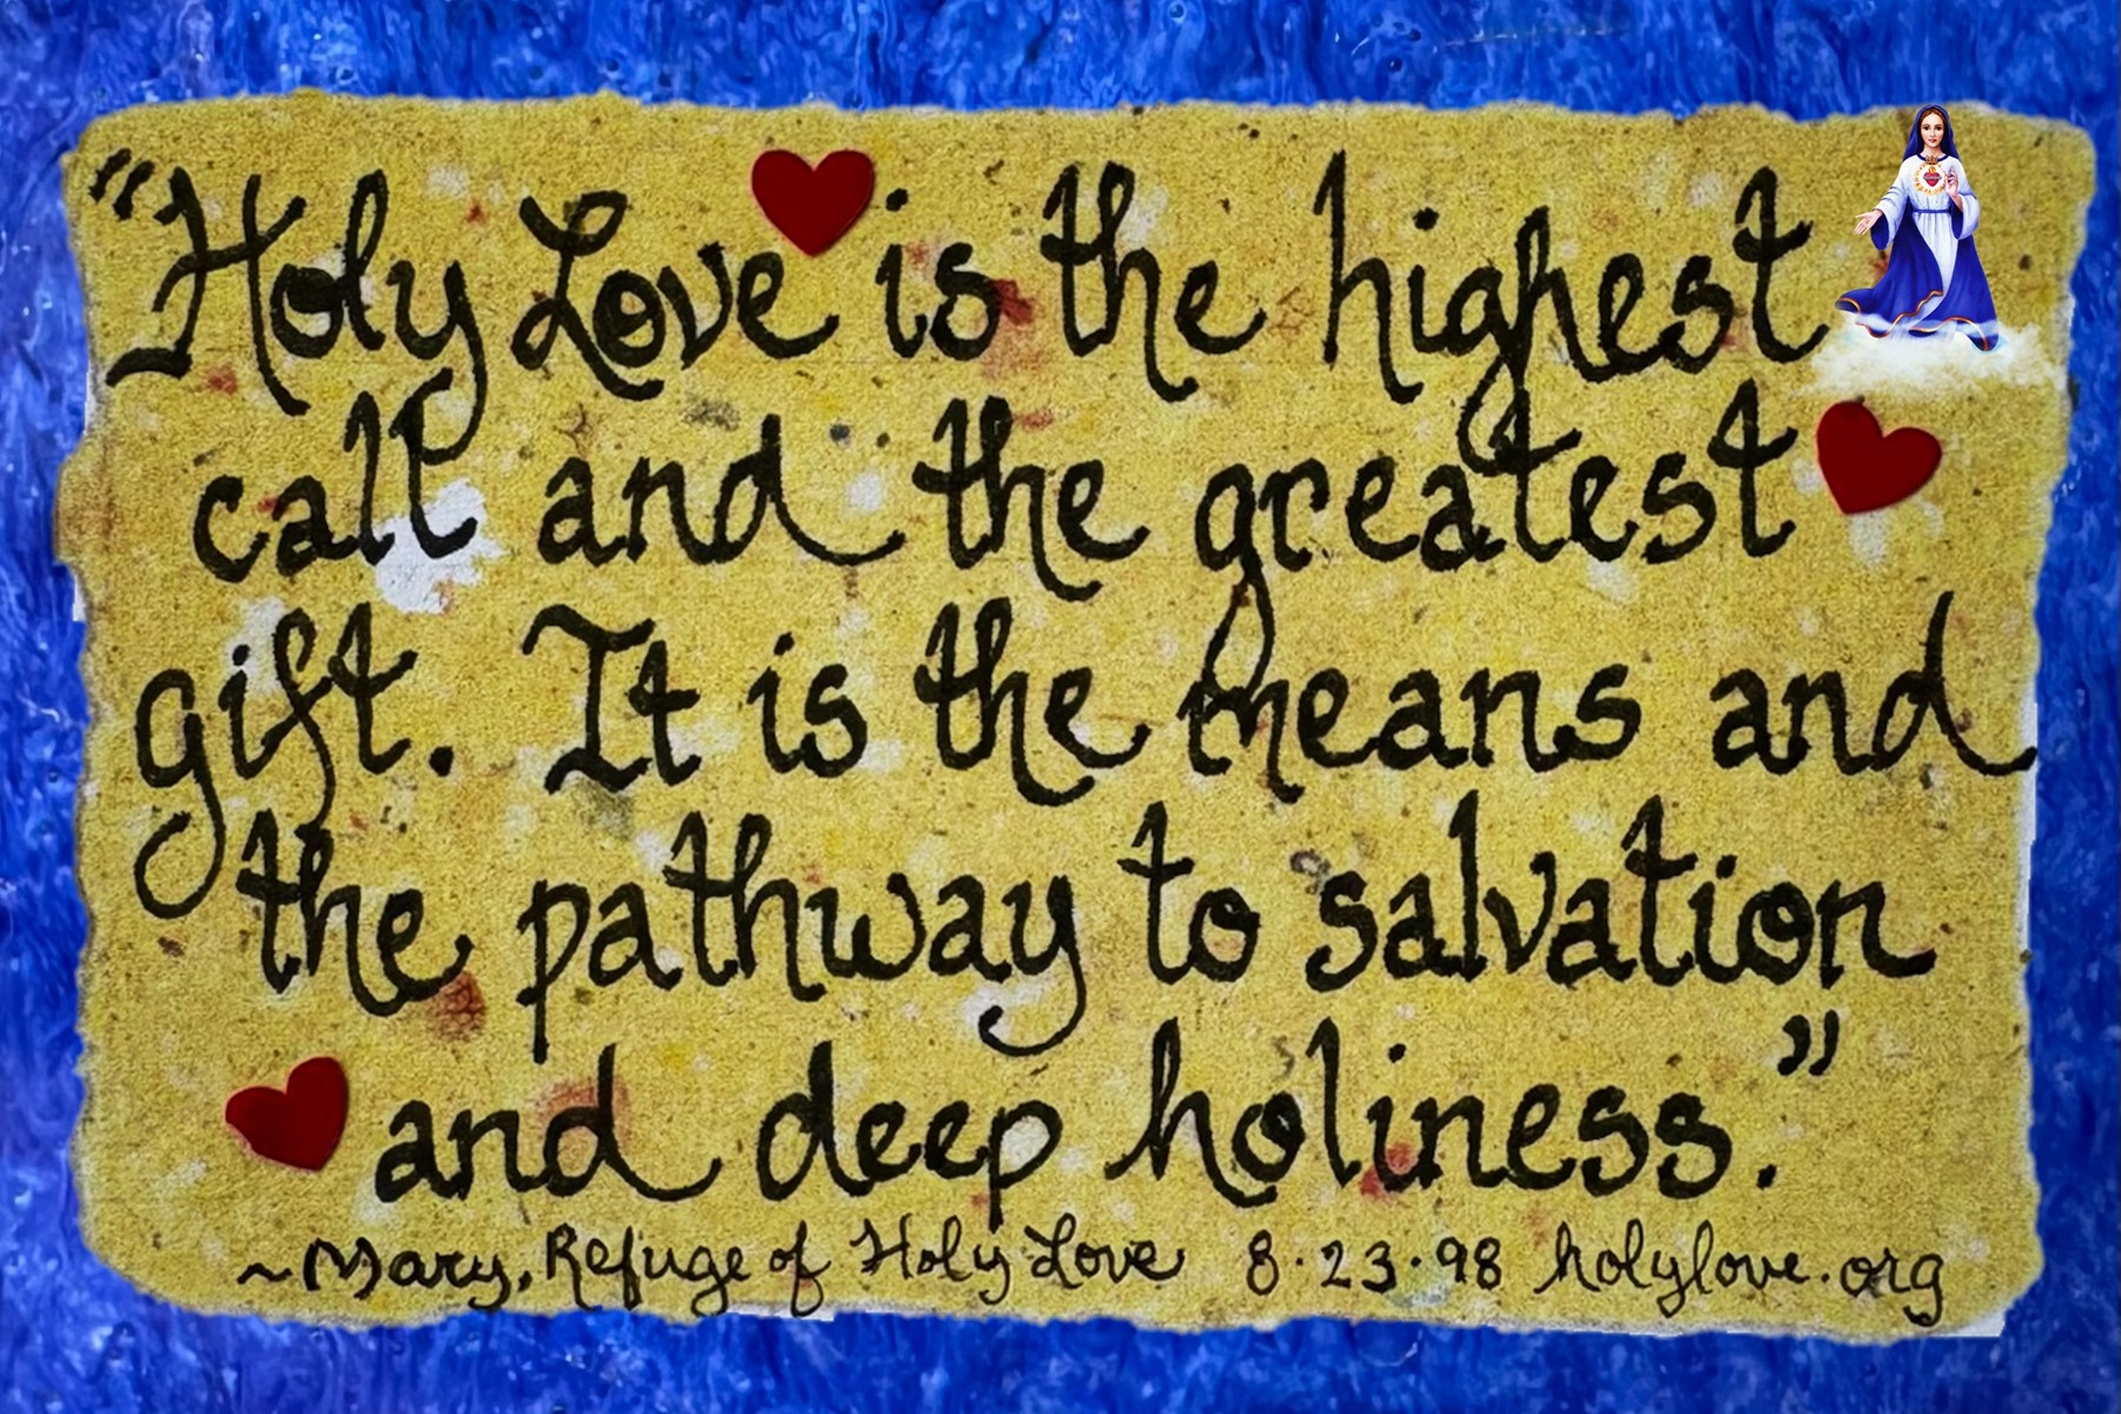 "Holy Love is the highest
call and the greatest
gift. It is the means and
the pathway to salvation
and deep holiness."
~Mary, Refuge of Holy Love 8.23.98 holylove.org